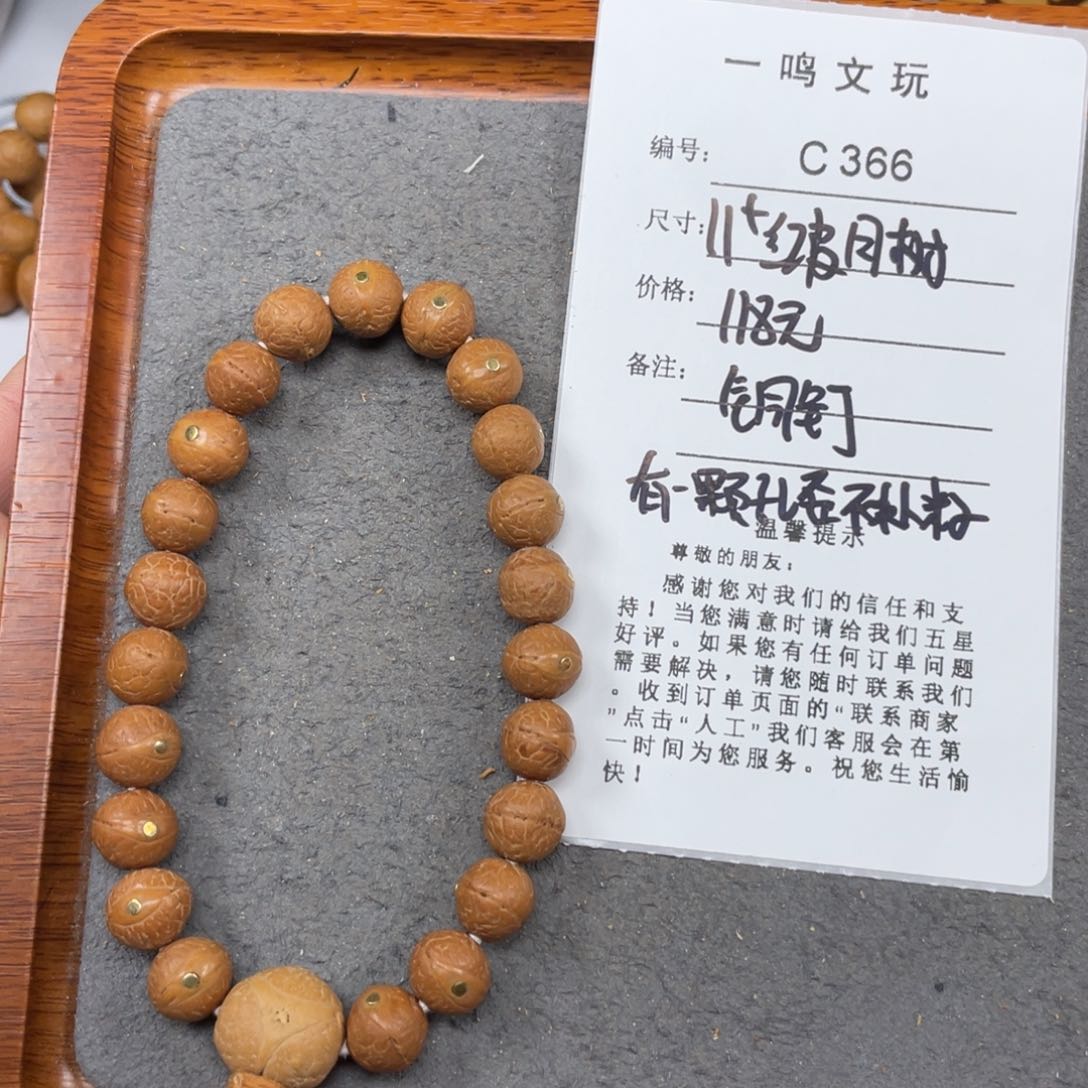 一鸣文玩
编号: C 366
尺寸: 11+红皮月树
价格: 118元
备注: 铜钉
有一颗孔吞不补粉
温馨提示
尊敬的朋友:
感谢您对我们的信任和支
持!当您满意时请给我们五星
好评。如果您有任何订单问题
需要解决,请您随时联系我们
。收到订单页面的“联系商家
”点击“人工”我们客服会在第
一时间为您服务。祝您生活愉
快!